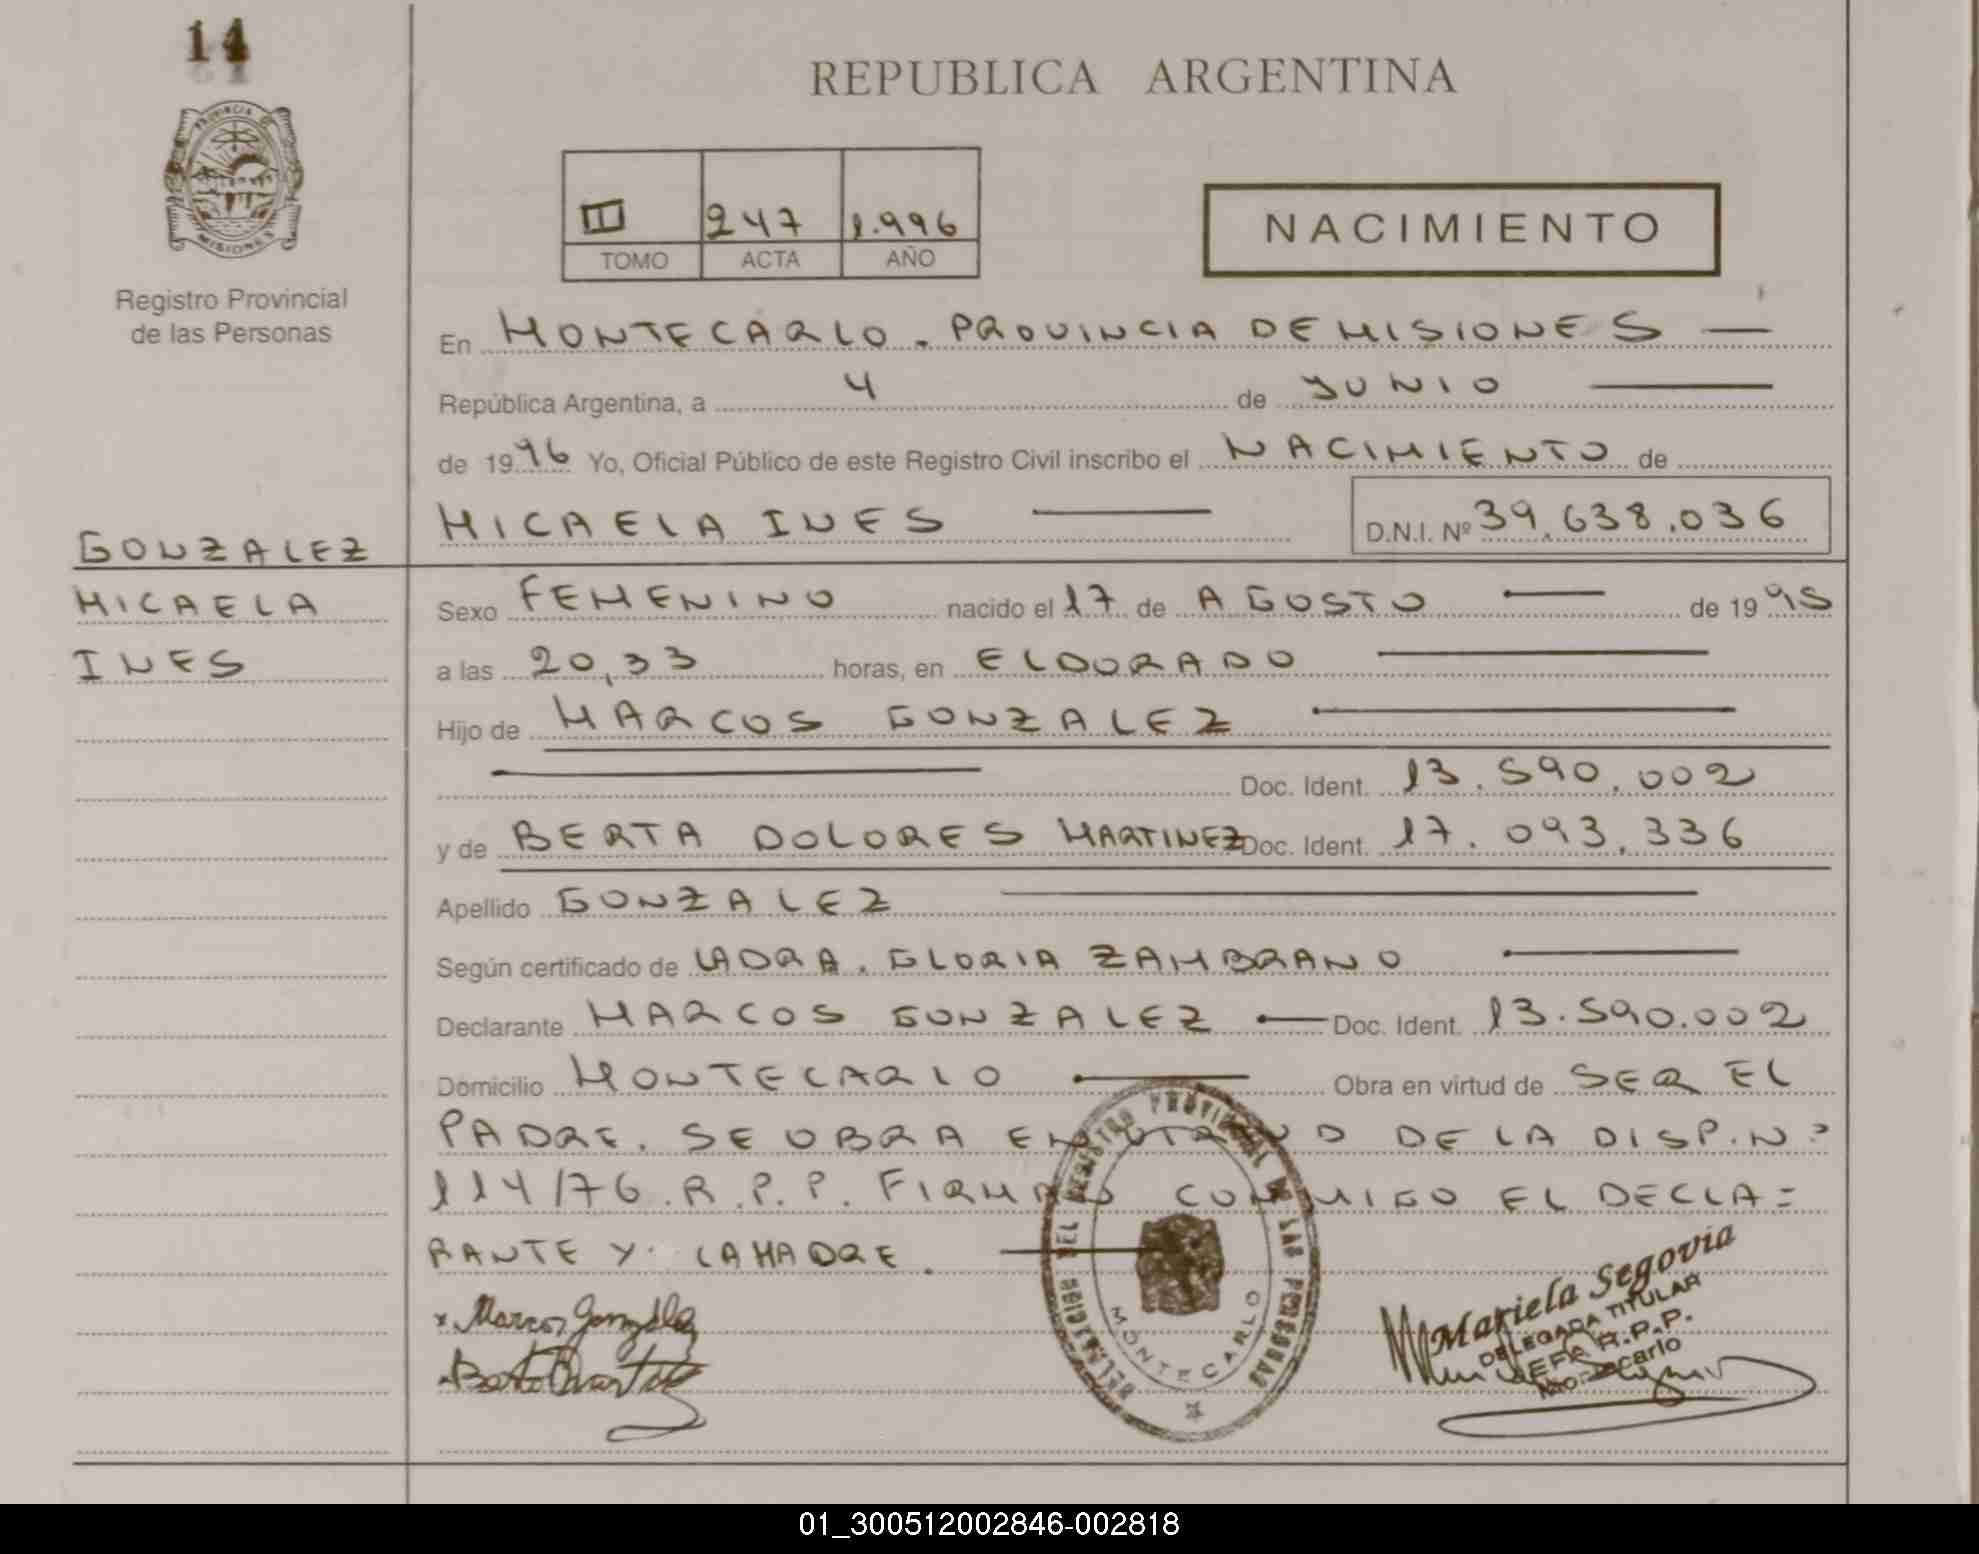 14
PROVINCIA DE
MISIONES
Registro Provincial
de las Personas
REPUBLICA ARGENTINA
II 247 1.996
TOMO ACTA AÑO
NACIMIENTO
En MONTECARLO. PROVINCIA DE MISIONES
República Argentina, a 4 de JUNIO
de 1996 Yo, Oficial Público de este Registro Civil inscribo el NACIMIENTO de
MICAELA INES D.N.I. Nº 39.638.036
GONZALEZ
MICAELA
INES
Sexo FEMENINO nacido el 17 de AGOSTO de 1995
a las 20,33 horas, en ELDORADO
Hijo de MARCOS GONZALEZ
Doc. Ident. 13.590.002
y de BERTA DOLORES MARTINEZ Doc. Ident. 17.093.336
Apellido GONZALEZ
Según certificado de LA DRA. GLORIA ZAMBRANO
Declarante MARCOS GONZALEZ Doc. Ident. 13.590.002
Domicilio MONTECARLO Obra en virtud de SER EL
PADRE. SE OBRA EN VIRTUD DE LA DISP. Nº
114/76. R.P.P. FIRMAN CONMIGO EL DECLA=
RANTE Y LA MADRE.
x Marcos Gonzalez
DEL REGISTRO PROVINCIAL DE LAS PERSONAS
MONTECARLO
Mariela Segovia
DELEGADA TITULAR
JEFA R.P.P.
01_300512002846-002818